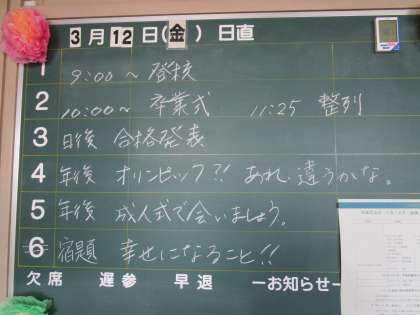 3月12日(金) 日直
1 9:00～ 登校
2 10:00～ 卒業式 11:25 整列
3 日後 合格発表
4 年後 オリンピック?! あれ、違うかな。
5 年後 成人式で会いましょう。
6 宿題 幸せになること!!
欠席 遅参 早退 ーお知らせー